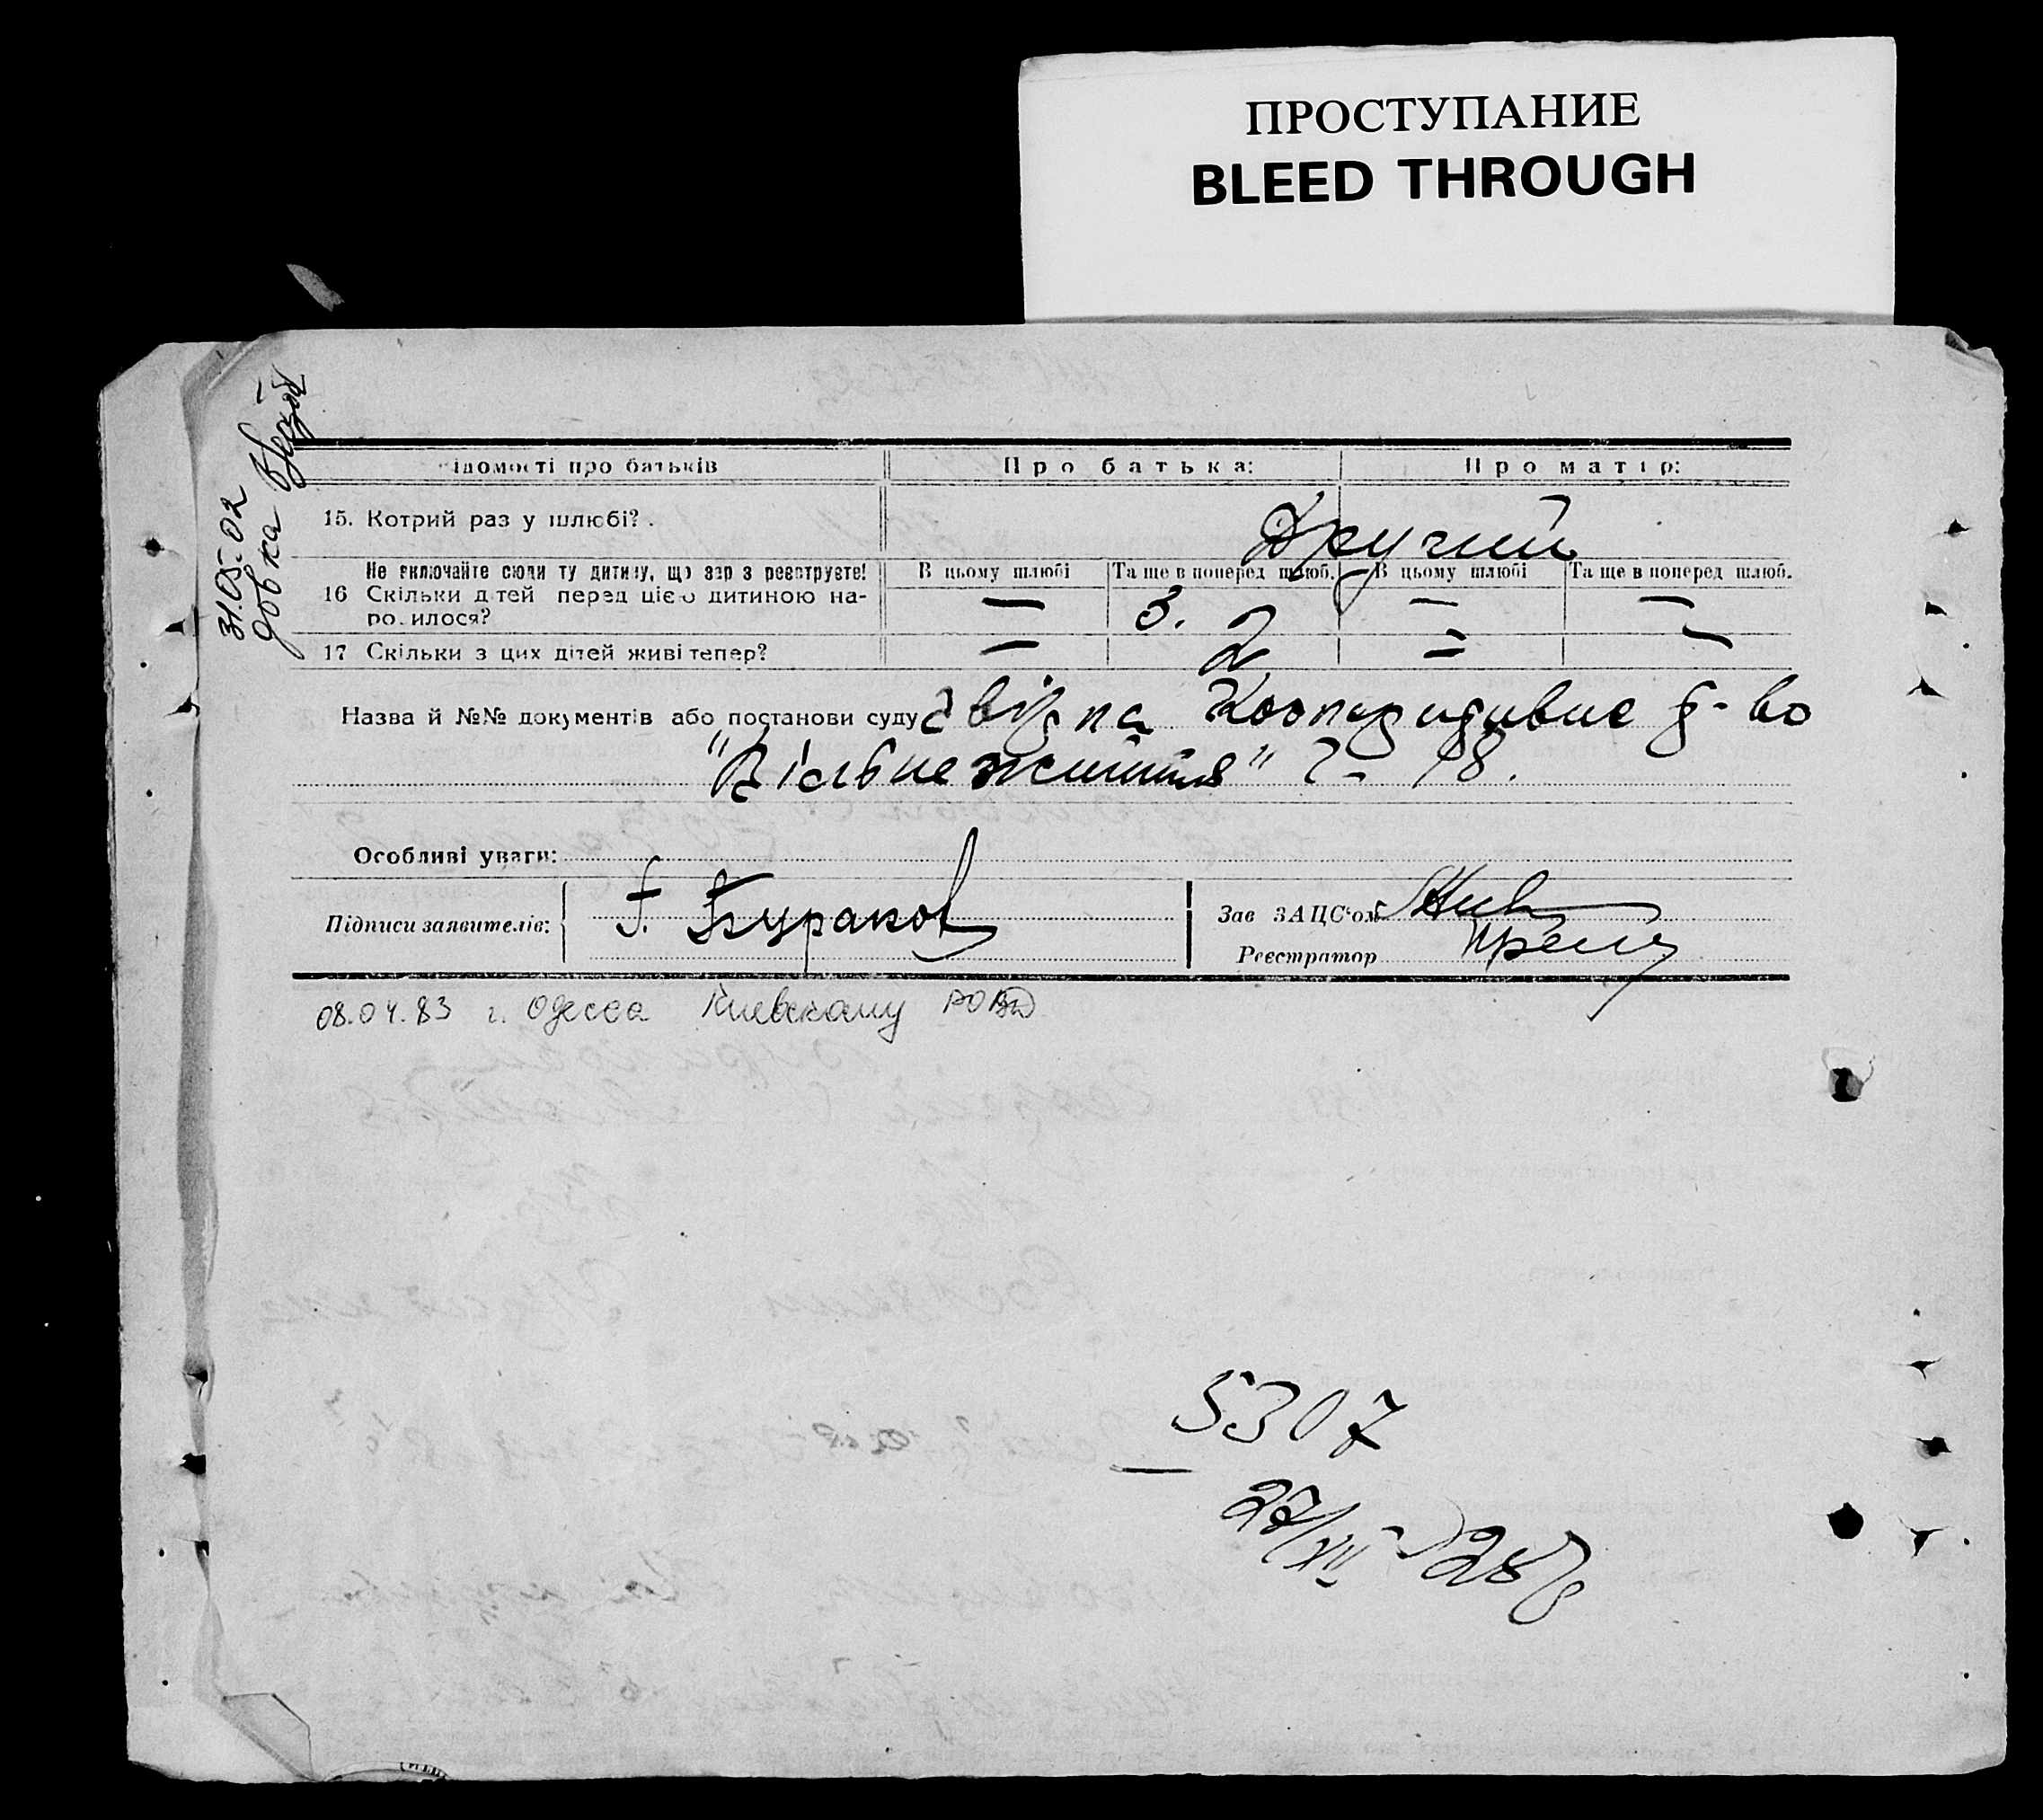 ПРОСТУПАНИЕ
BLEED THROUGH
31.05.02
довка
ідомості про батьків
Про батька:
Про матір:
15. Котрий раз у шлюбі?
Другий
Не включайте сюди ту дитину, що зар з реєструєте!
16 Скільки дітей перед цією дитиною на-
ро. илося?
В цьому шлюбі
Та ще в поперед шлюб.
В цьому шлюбі
Та ще в поперед шлюб.
— 3. — —
17 Скільки з цих дітей живі тепер?
— 2 — —
Назва й №№ документів або постанови суду
Кооперативне
життя" 48.
Особливі уваги:
Підписи заявителів:
Г. Бураков
Зав ЗАЦС'ом
Реєстратор
08.04.83 г. Одесса Киевскому РОВД
5307
27/XII